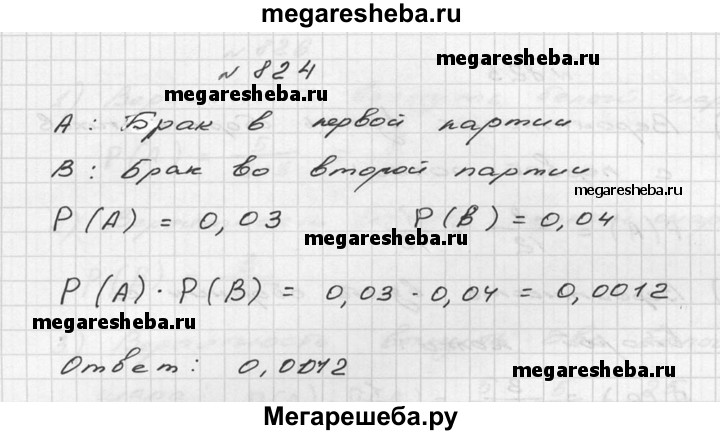 megaresheba.ru
№ 824
megaresheba.ru
А : Брак в первой партии
В : Брак во второй партии
megaresheba.ru
P(A) = 0,03 P(B) = 0,04
megaresheba.ru
P(A) · P(B) = 0,03 · 0,04 = 0,0012
megaresheba.ru
Ответ: 0,0012
megaresheba.ru
Мегарешеба.ру